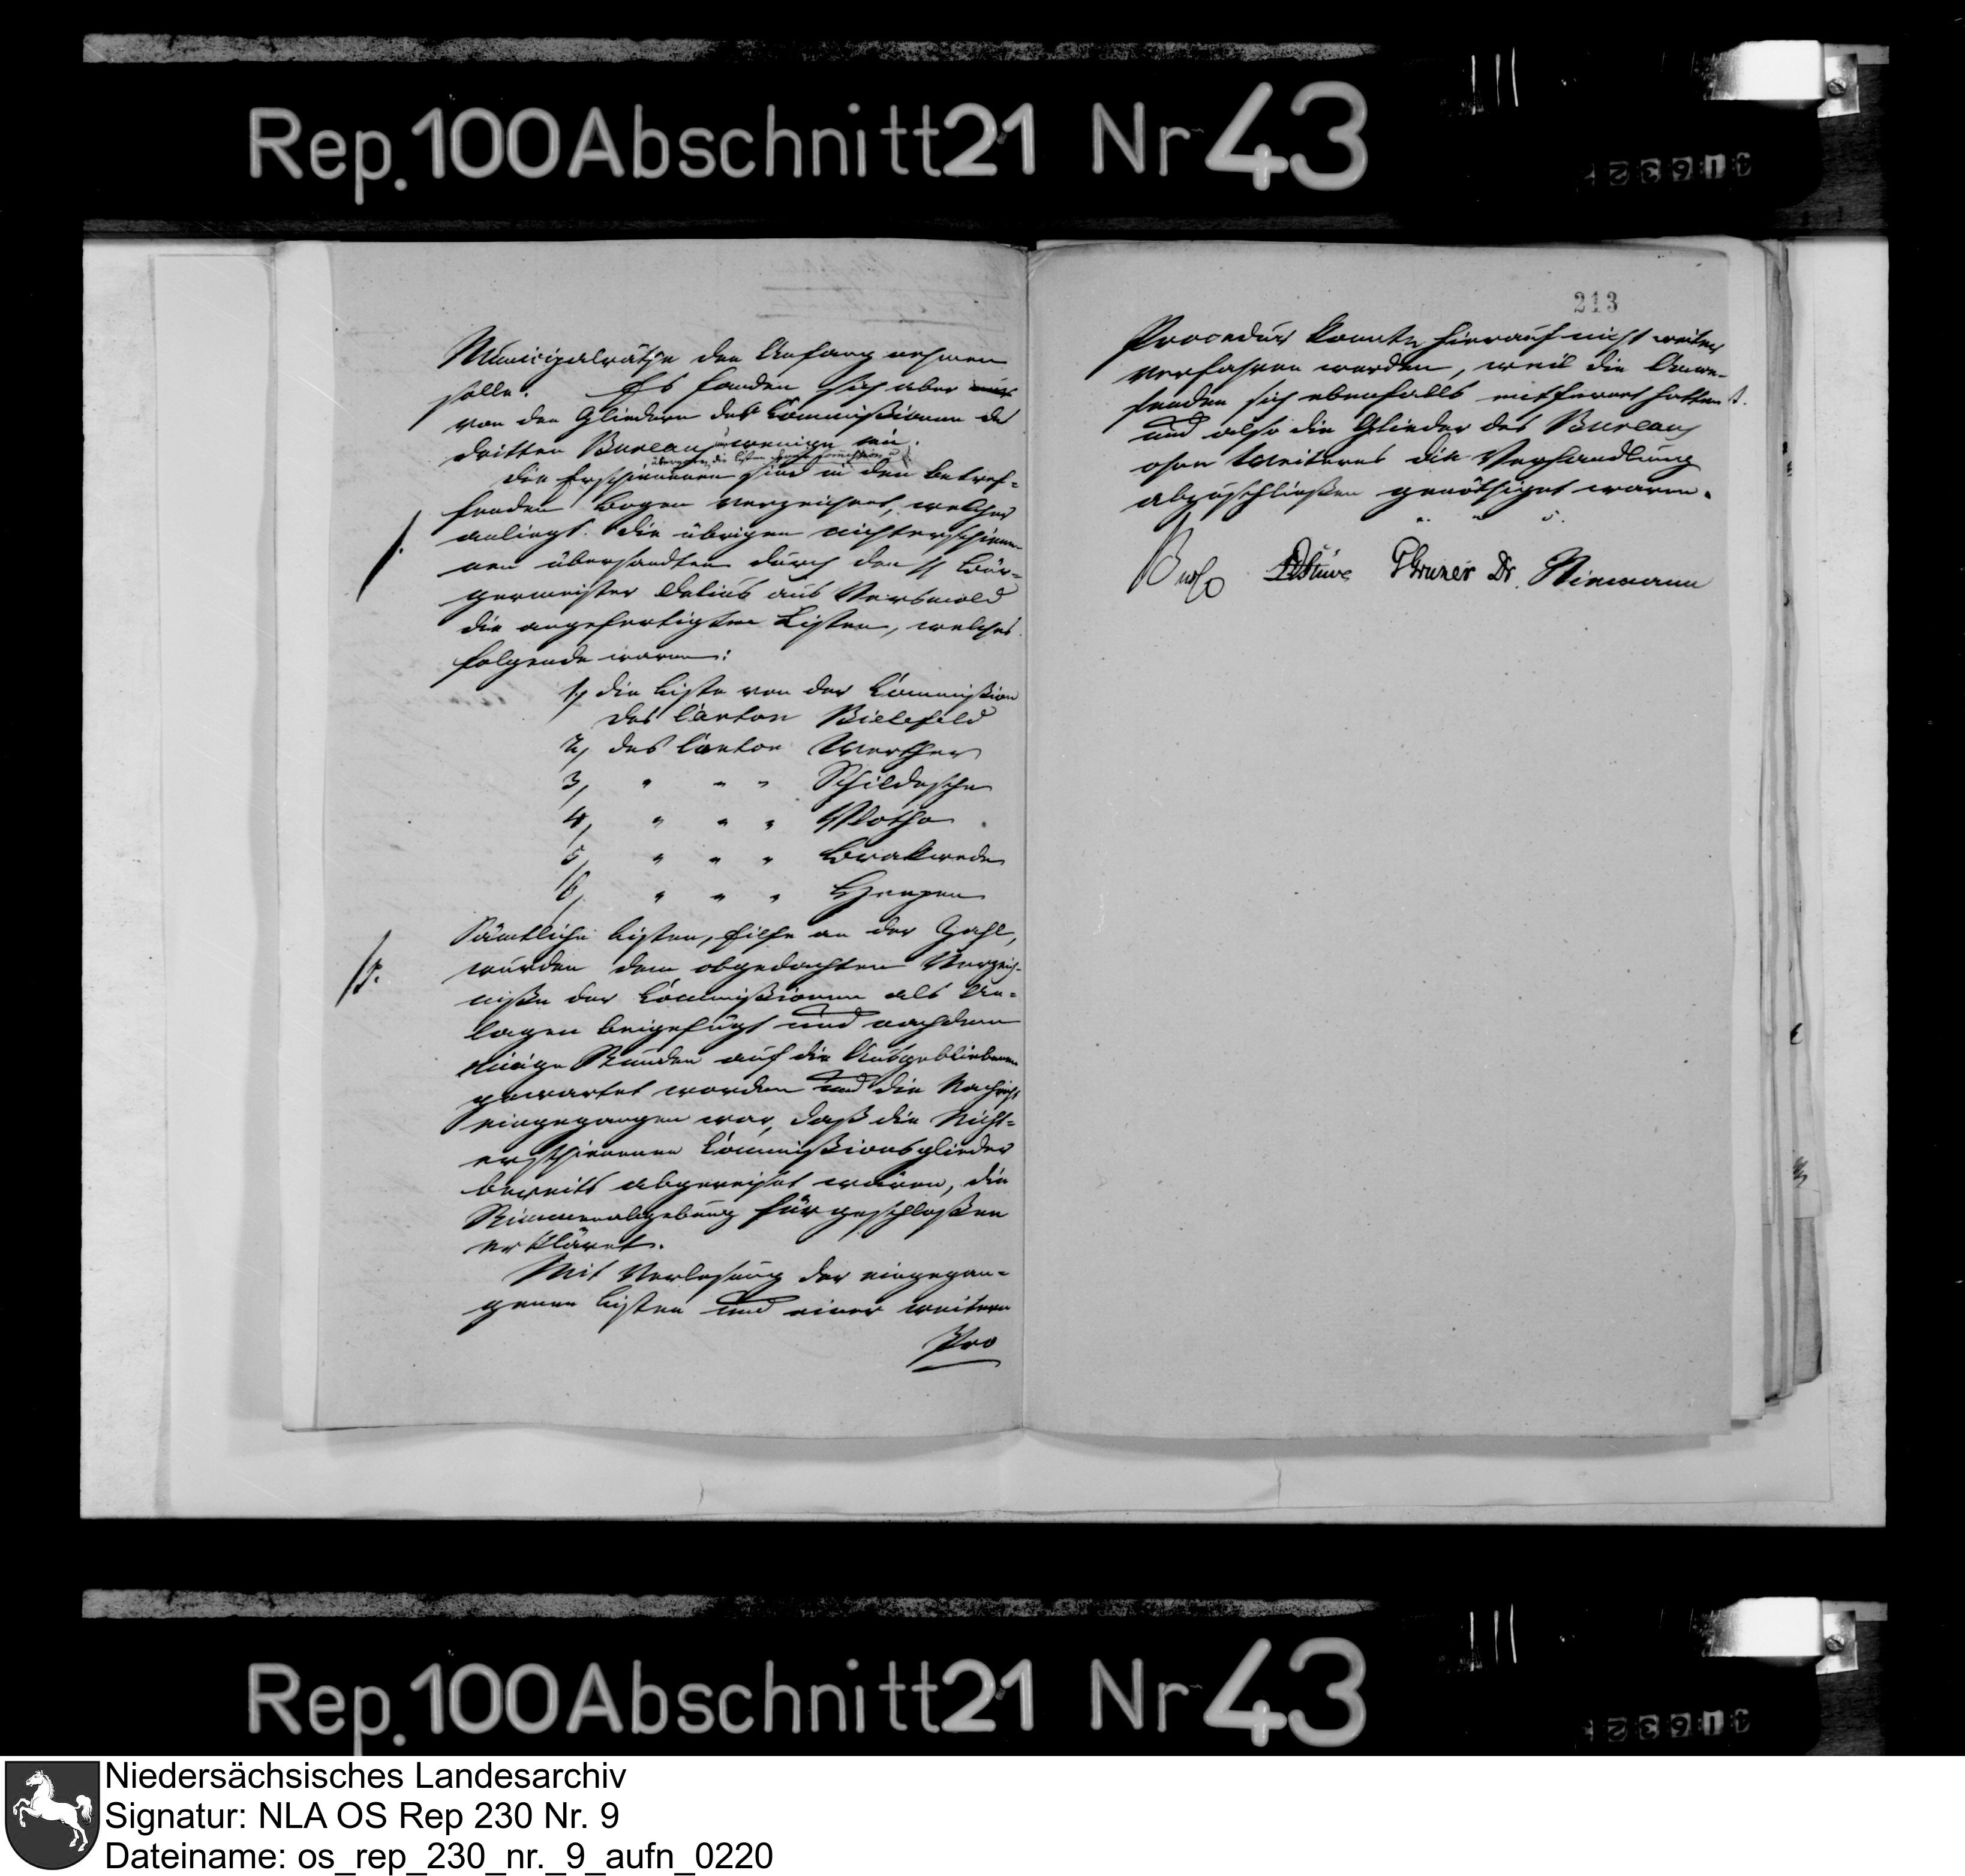 Rep. 100 Abschnitt 21 Nr 43
Municipalräthe den Anfang nehmen
solle. Es fanden sich aber
von den Gliedern der Commißionen des
dritten Bureaus wenige ein.
Die Erschienenen sind in den betref-
fenden Bogen verzeichnet, welcher
anliegt. Die übrigen nichterschiene-
nen übersandten durch den H Bür-
germeister Delius aus Versmold
die angefertigten Listen, welches
folgende waren:
1, die Liste von der Commißion
des Canton Bielefeld
2, des Canton Werther
3, " " " Schildesche
4, " " " Vlotho
5, " " " Brakwede
6, " " " Heepen
Sämtliche Listen, Eilfe an der Zahl,
wurden dem obgedachten Verzeich-
niße der Commißionen als An-
lagen beigefügt und nachdem
einige Stunden auf die Ausgebliebenen
gewartet worden und die Nachricht
eingegangen war, daß die Nicht-
erschienenen Commißionsglieder
bereits abgereiset wären, die
Stimmenabgebung für geschloßen
erkläret.
Mit Verlesung der eingegan-
genen Listen und einer weitern
Pro
213
Procedur konnte hierauf nicht weiter
verfahren werden, weil die Anwe-
senden sich ebenfalls entfernt hatten
und also die Glieder des Bureaus
ohne Weiteres die Verhandlung
abzuschließen genöthiget waren.
Stüve Gruner Dr. Niemann
Rep. 100 Abschnitt 21 Nr 43
Niedersächsisches Landesarchiv
Signatur: NLA OS Rep 230 Nr. 9
Dateiname: os_rep_230_nr._9_aufn_0220